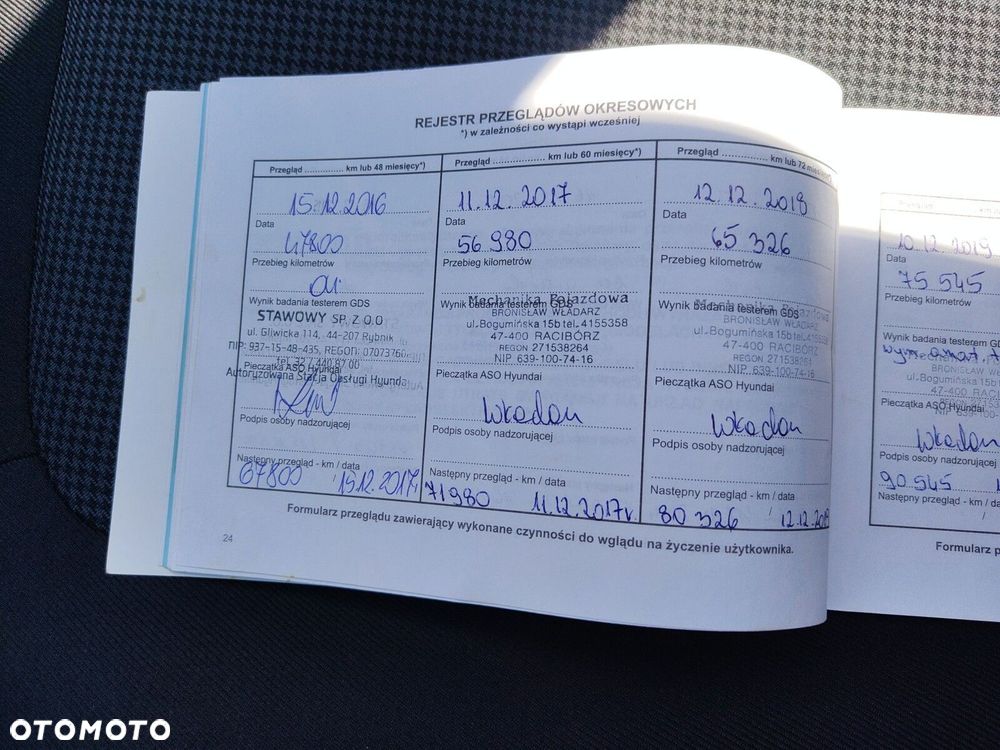 REJESTR PRZEGLĄDÓW OKRESOWYCH
*) w zależności co wystąpi wcześniej
Przegląd .................. km lub 48 miesięcy*)
15.12.2016
Data
47800
Przebieg kilometrów
Wynik badania testerem GDS
STAWOWY SP. Z O.O
ul. Gliwicka 114, 44-207 Rybnik
NIP: 937-15-48-435, REGON: 07073760
tel. 32 / 440 87 00
Pieczątka ASO Hyundai
Autoryzowana Stacja Obsługi Hyundai
Podpis osoby nadzorującej
Następny przegląd - km / data
67800 / 15.12.2017r
Przegląd .................. km lub 60 miesięcy*)
11.12.2017
Data
56 980
Przebieg kilometrów
Mechanika Pojazdowa
Wynik badania testerem GDS
BRONISŁAW WŁADARZ
ul.Bogumińska 15b tel. 4155358
47-400 RACIBÓRZ
REGON 271538264
NIP 639-100-74-16
Pieczątka ASO Hyundai
Podpis osoby nadzorującej
Następny przegląd - km / data
71980 11.12.2017r.
Przegląd .................. km lub 72
12.12.2018
Data
65 326
Przebieg kilometrów
Mechanika Pojazdowa
Wynik badania testerem GDS
BRONISŁAW WŁADARZ
ul.Bogumińska 15b tel. 4155358
47-400 RACIBÓRZ
REGON 271538264
NIP 639-100-74-16
Pieczątka ASO Hyundai
Podpis osoby nadzorującej
Następny przegląd - km / data
80 326 / 12.12.
Formularz przeglądu zawierający wykonane czynności do wglądu na życzenie użytkownika.
24
10.12.2019
Data
75 545
Przebieg kilometrów
Wynik badania testerem GD
BRONISŁAW
ul.Bogumińska 15b
47-400 RAC
Pieczątka ASO Hyundai
NIP 639-100-
Podpis osoby nadzorującej
90 545
Następny przegląd - km / da
/
Formularz p
OTOMOTO